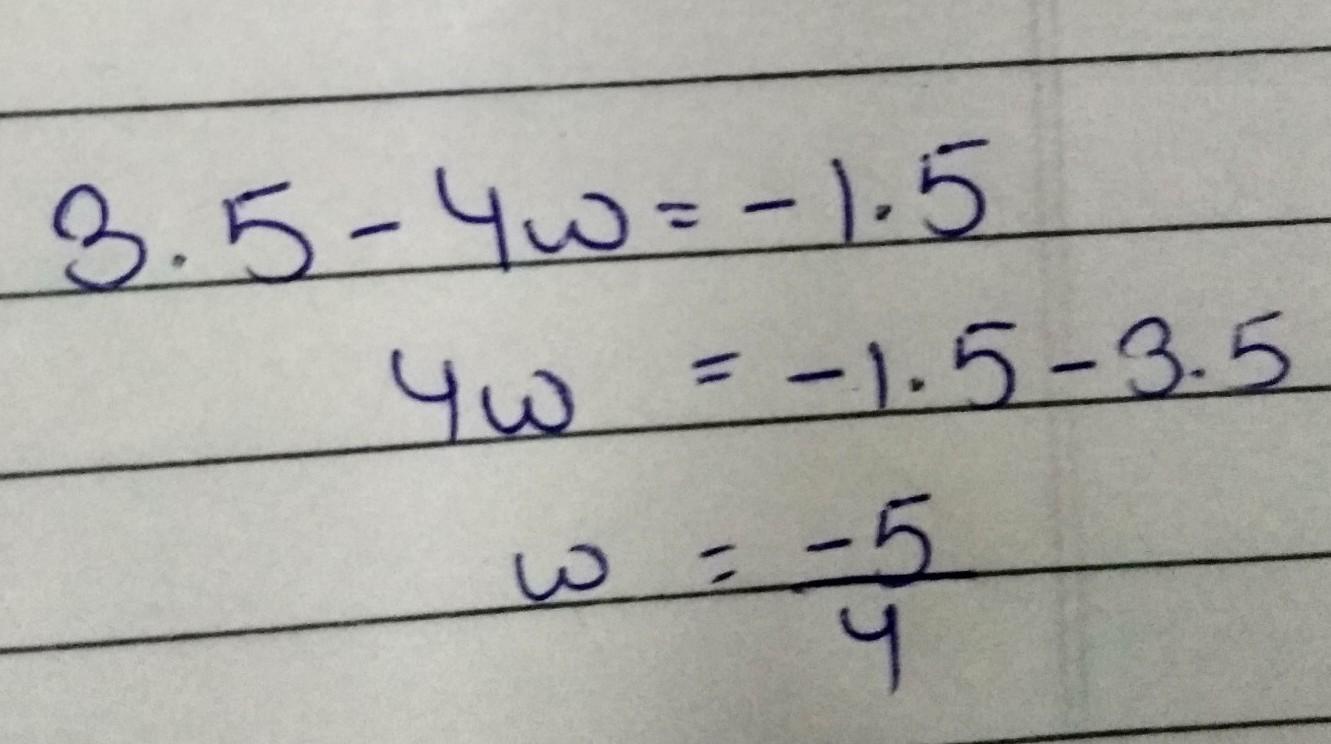 3.5 - 4w = -1.5
4w = -1.5 - 3.5
w = -5/4